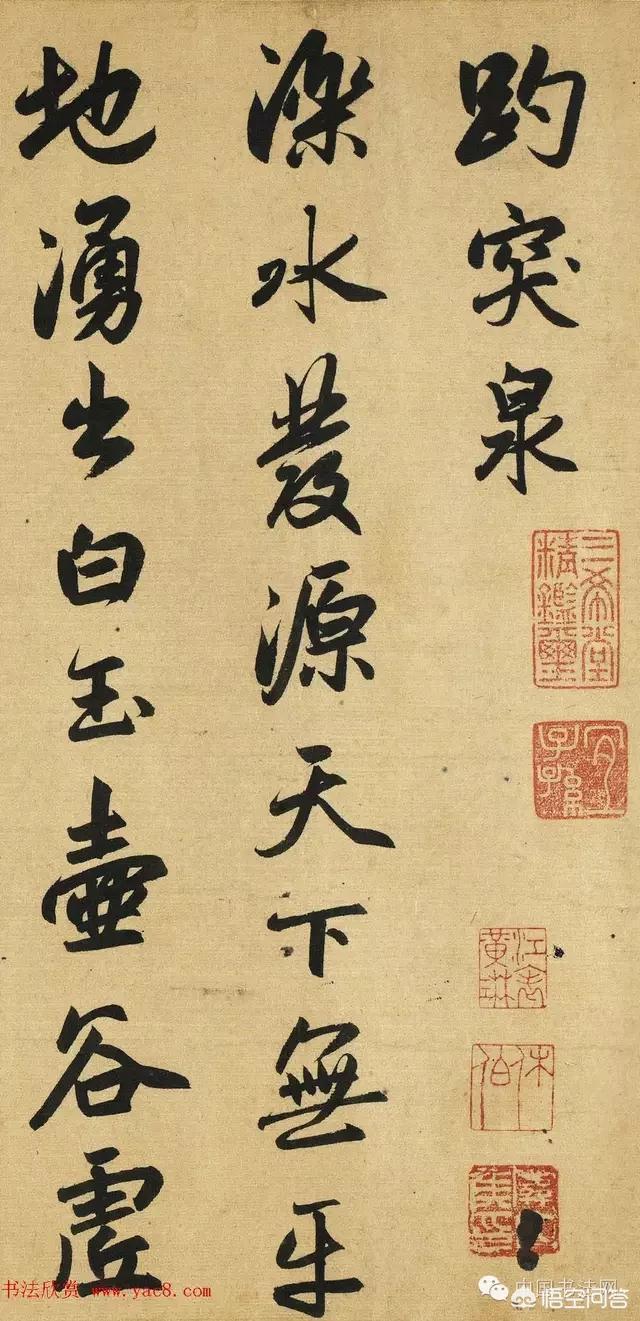 趵突泉
濼水發源天下無平
地湧出白玉壺谷虛
三希堂精鑑璽
宜子孫
江表黃琳
休伯
书法欣赏 www.yac8.com
中国书法网
悟空问答